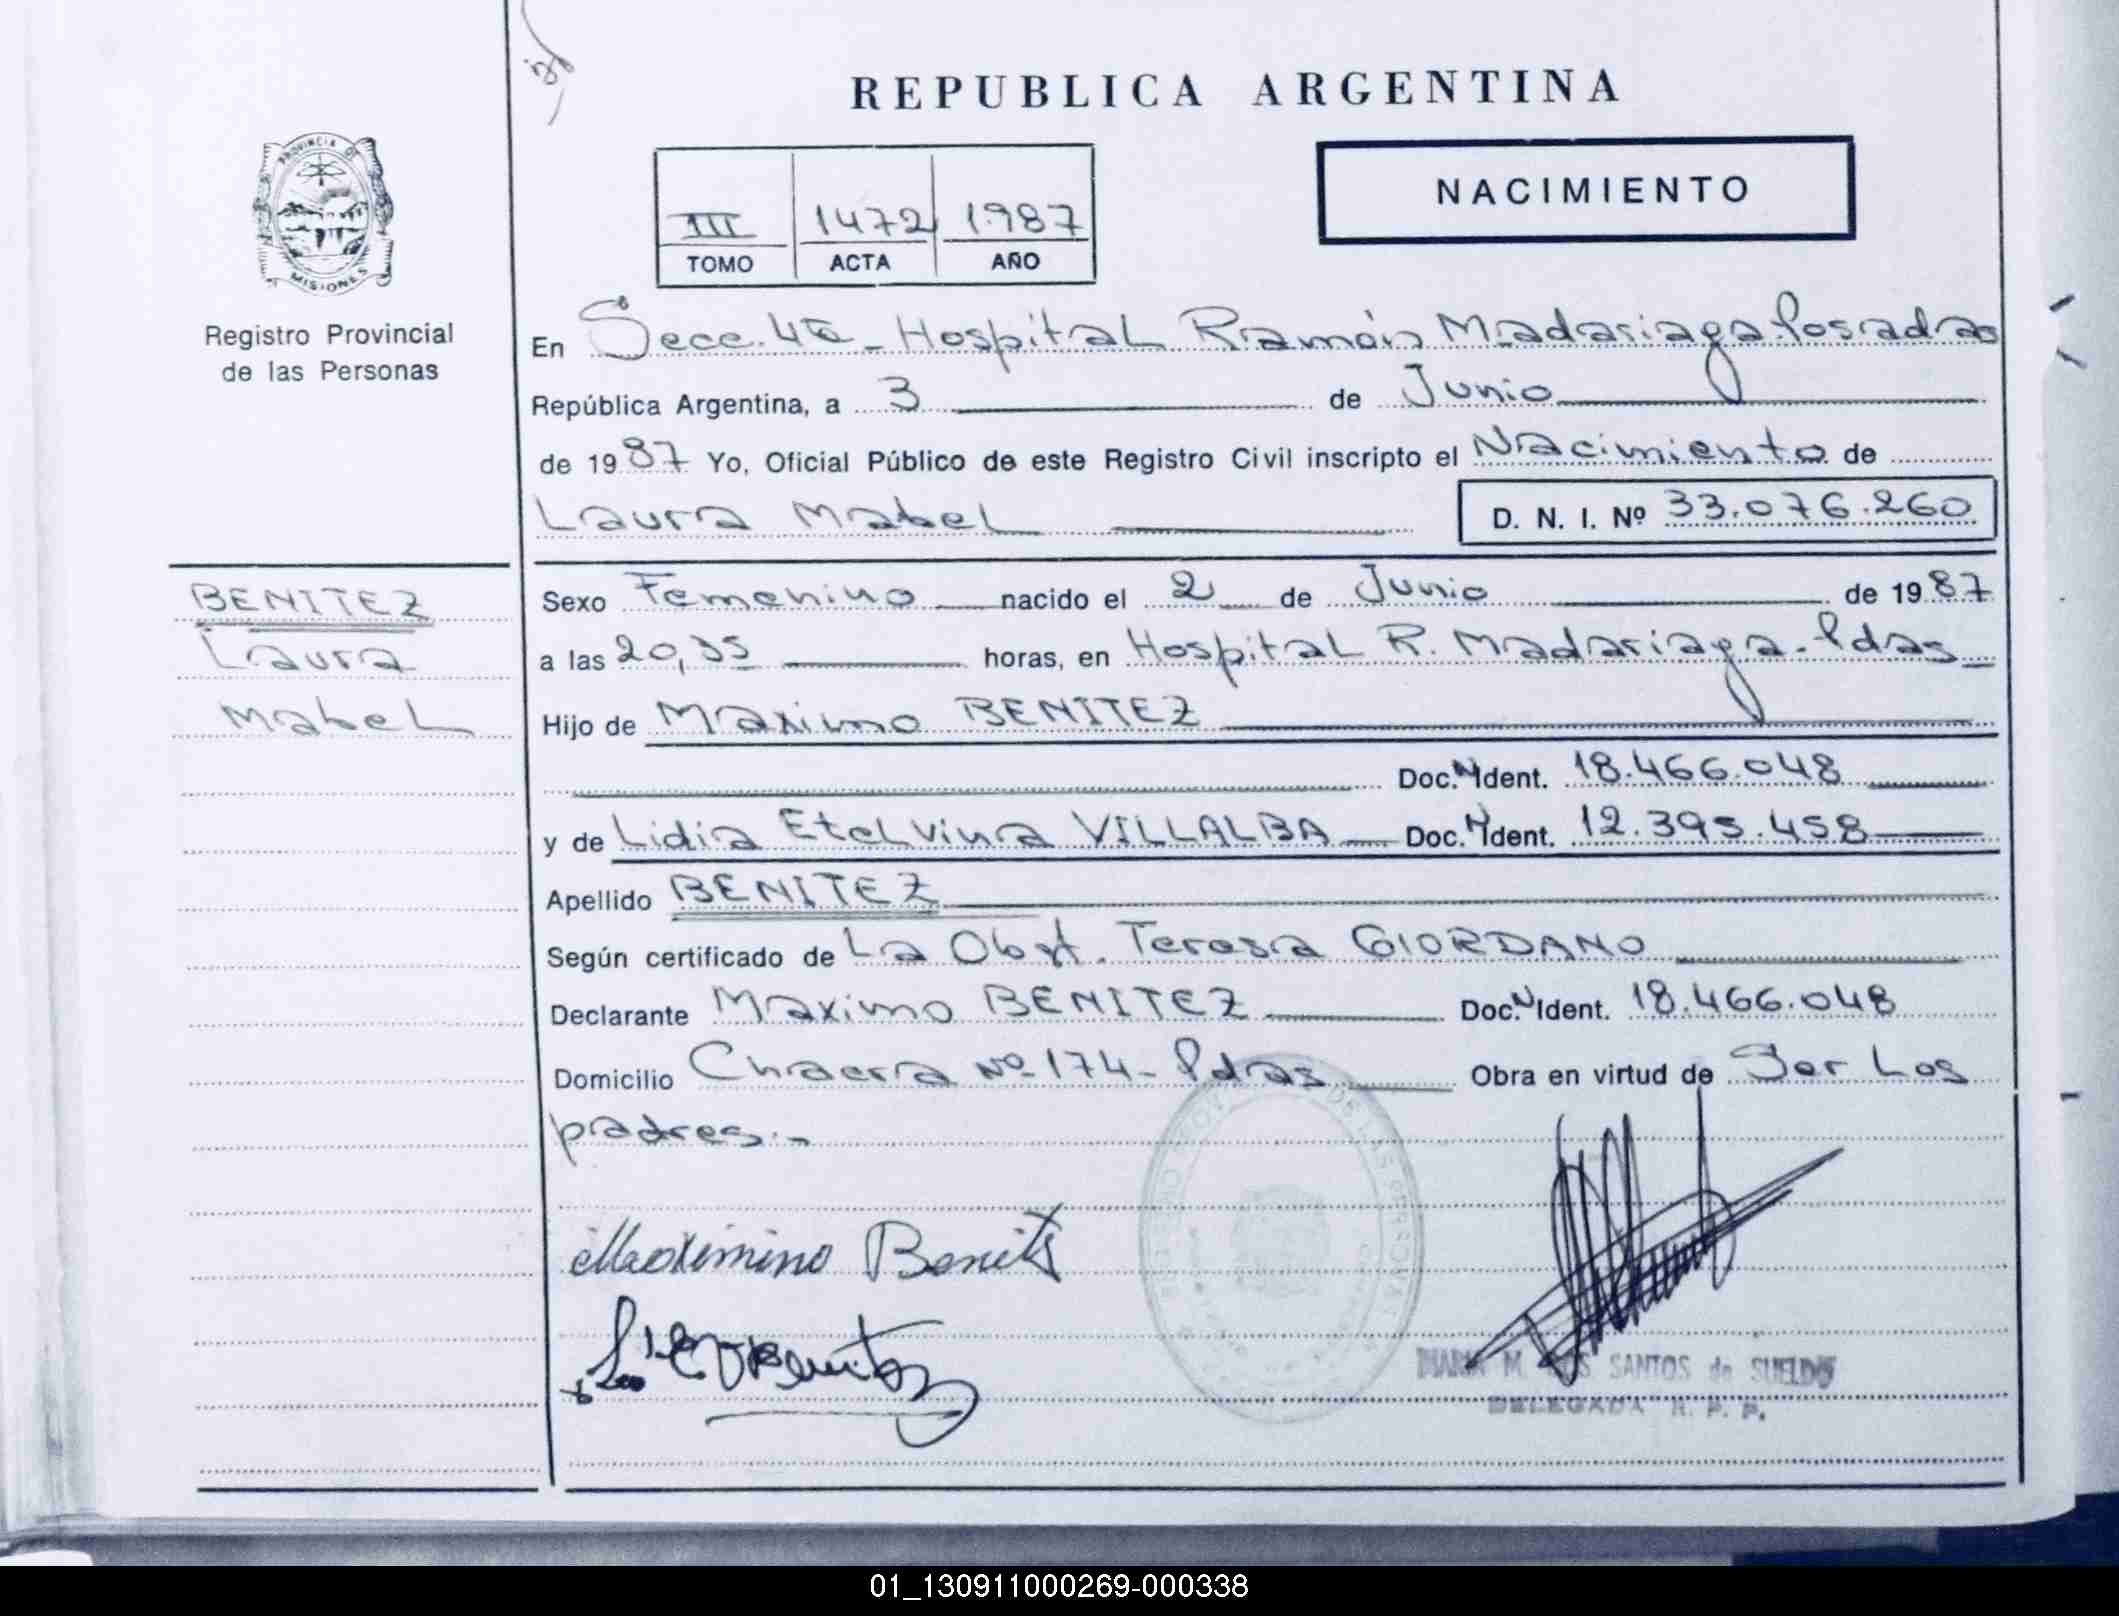 REPUBLICA ARGENTINA
PROVINCIA DE
MISIONES
Registro Provincial
de las Personas
III 1472 1987
TOMO ACTA AÑO
NACIMIENTO
En Secc. 4ª - Hospital Ramón Madariaga Posadas
República Argentina, a 3 de Junio
de 1987 Yo, Oficial Público de este Registro Civil inscripto el Nacimiento de
Laura Mabel D. N. I. Nº 33.076.260
BENITEZ
Laura
Mabel
Sexo Femenino nacido el 2 de Junio de 1987
a las 20,35 horas, en Hospital R. Madariaga - Pdas
Hijo de Maximo BENITEZ
Doc. N Ident. 18.466.048
y de Lidia Etelvina VILLALBA Doc. N Ident. 12.395.458
Apellido BENITEZ
Según certificado de La Obst. Teresa GIORDANO
Declarante Maximo BENITEZ Doc. N Ident. 18.466.048
Domicilio Chacra Nº 174 - Pdas Obra en virtud de Ser Los
padres.-
Maximino Benits
MARIA M. DOS SANTOS de SUELDO
DELEGADA R. P. P.
01_130911000269-000338